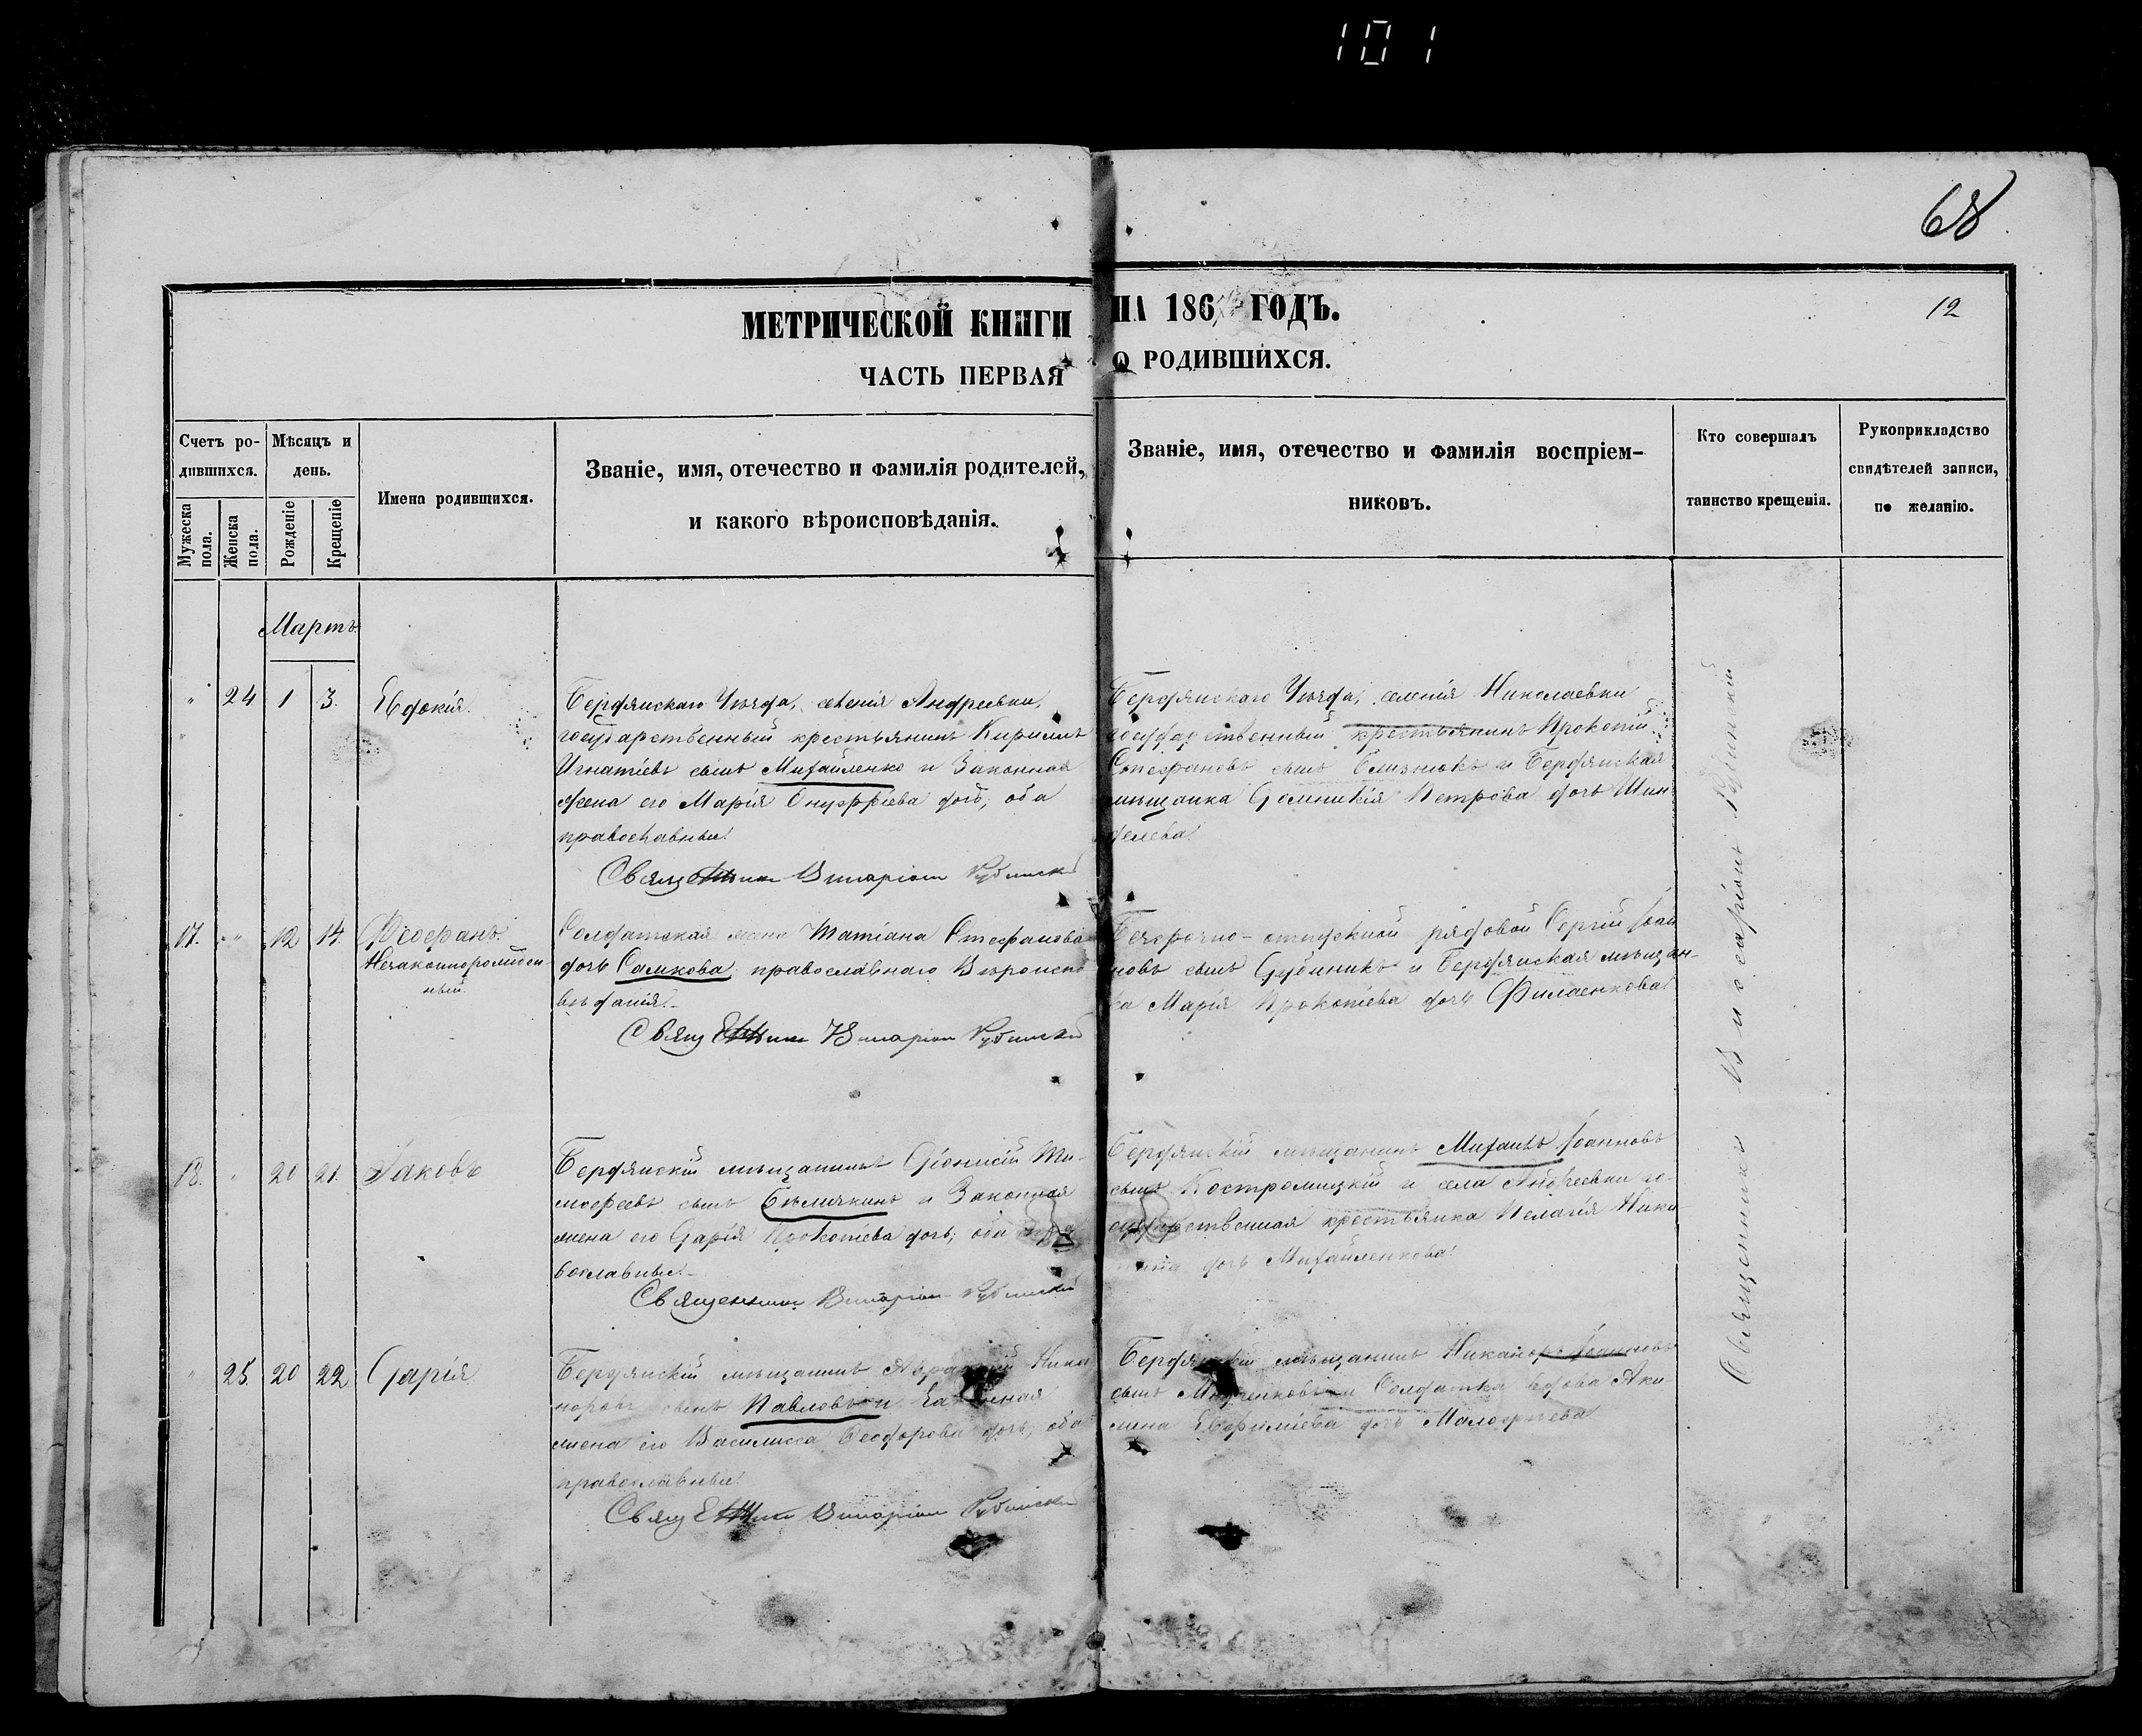 101
68
МЕТРИЧЕСКОЙ КНИГИ НА 186 ГОДЪ.
12
ЧАСТЬ ПЕРВАЯ О РОДИВШИХСЯ.
Счетъ ро-
дившихся.
Мужеска пола.
Женска пола.
Мѣсяцъ и
день.
Рожденіе
Крещеніе
Имена родившихся.
Званіе, имя, отечество и фамилія родителей,
и какого вѣроисповѣданія.
Званіе, имя, отечество и фамилія воспріем-
никовъ.
Кто совершалъ
таинство крещенія.
Рукоприкладство
свидѣтелей записи,
по желанію.
Мартъ
" 24 1 3. Евдокія.
Бердянскаго Уѣзда, селенія Андреевки,
государственный крестьянинъ Кириллъ
Игнатіевъ сынъ Михайленко и Законная
жена его Марія Онуфріева дочь; оба
православные.
Священник Виссаріон Рубинский
Бердянскаго Уѣзда, селенія Николаевки
государственный крестьянинъ Прокопій
Стефановъ сынъ Близнюкъ и Бердянская
мѣщанка Домникія Петрова дочь Шин-
делева.
17. " 12 14. Феофанъ.
Незаконнорожден-
ный.
Солдатская жена Татіана Стефанова
дочь Салкова православнаго Вѣроиспо
вѣданія.
Священник Виссаріон Рубинский
Безсрочно-отпускной рядовой Сергій Іоан
новъ сынъ Дубиникъ и Бердянская мѣщан-
ка Марія Прокопіева дочь Филаенкова.
18. " 20 21. Іаковъ
Бердянскій мѣщанинъ Діонисій Ти-
мофеевъ сынъ Бѣлячкинъ и Законная
жена его Дарія Прокопіева дочь; оба пра
вославные.
Священник Виссаріон Рубинский
Бердянскій мѣщанинъ Михаилъ Іоанновъ
сынъ Костромицкій и села Андреевки го-
сударственная крестьянка Пелагія Ники
дочь Михайленкова.
" 25. 20 22 Дарія
Бердянскій мѣщанинъ Ника
норовъ сынъ Павловъ и Законная
жена его Василисса Феодорова дочь, оба
православные.
Священник Виссаріон Рубинский
Бердянскій мѣщанинъ Никаноръ Іоанновъ
сынъ и Солдатка вдова Аки-
лина Евфиміева дочь
Священникъ Виссаріонъ Рубинскій